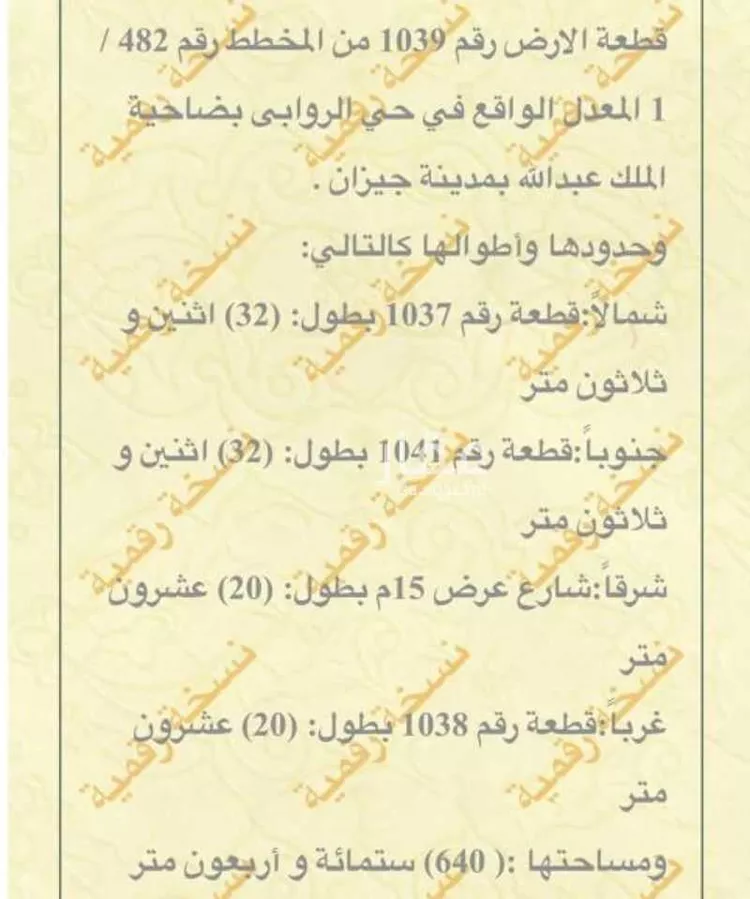 قطعة الارض رقم 1039 من المخطط رقم 482 /
1 المعدل الواقع في حي الروابى بضاحية
الملك عبدالله بمدينة جيزان .
وحدودها وأطوالها كالتالي:
شمالاً:قطعة رقم 1037 بطول: (32) اثنين و
ثلاثون متر
جنوباً:قطعة رقم 1041 بطول: (32) اثنين و
ثلاثون متر
شرقاً:شارع عرض 15م بطول: (20) عشرون
متر
غرباً:قطعة رقم 1038 بطول: (20) عشرون
متر
ومساحتها :( 640) ستمائة و أربعون متر
نسخة رقمية
نسخة رقمية
نسخة رقمية
نسخة رقمية
نسخة رقمية
نسخة رقمية
نسخة رقمية
نسخة رقمية
نسخة رقمية
نسخة رقمية
نسخة رقمية
نسخة رقمية